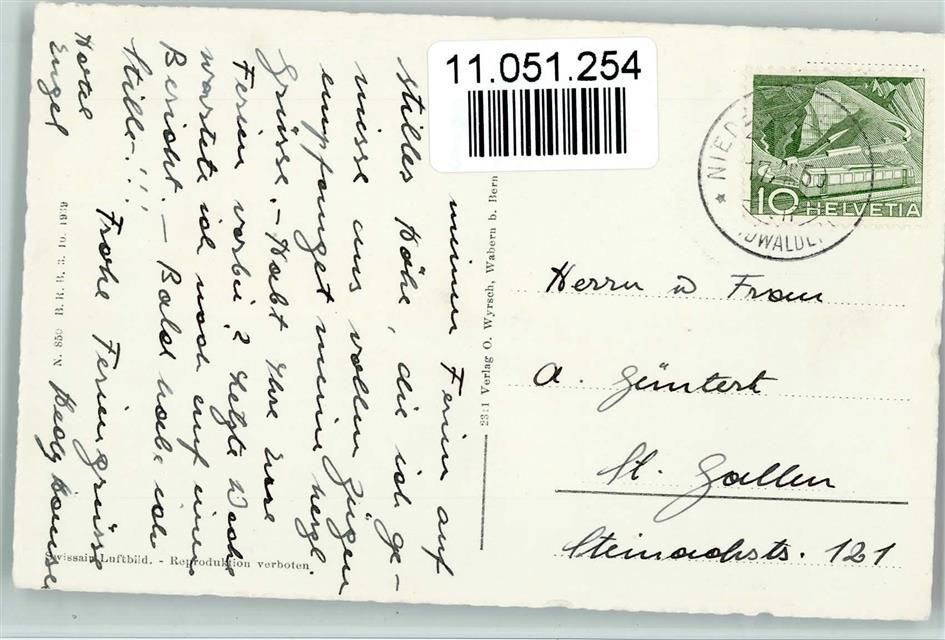 11.051.254
meinen Ferien auf
stiller Höhe, die ich ge-
niesse aus vollen Zügen
empfanget meine herzl.
Grüsse. - Habt Ihre Eure
Ferien vorbei? Letzte Woche
wartete ich noch auf einen
Bericht. - Bald habe ich
Stille-!!!
Frohe Feriengrüsse
Hotel
Engel
N. 859 B. R. B. 3. 10. 1939
Swissair-Luftbild. - Reproduktion verboten
2311 Verlag O. Wyrsch, Wabern b. Bern
NIEDE
50
(NIDWALDEN)
10 HELVETIA
Herrn u Frau
A. Güntert
St. Gallen
Steinachstr. 121